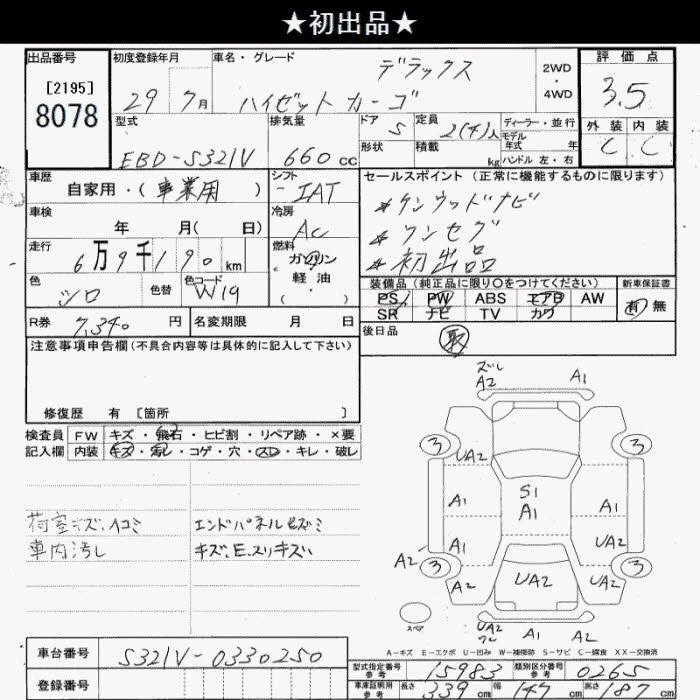 ★初出品★
出品番号
[2195]
8078
初度登録年月
29年 7月
車名・グレード
デラックス
ハイゼット カーゴ
2WD
・
4WD
評価点
3.5
外装 内装
C C
型式
EBD-S321V
排気量
660cc
ドア 5
形状
定員 2(4)人
積載 kg
ディーラー・並行
モデル
年式 年
ハンドル 左・右
車歴
自家用・(事業用)
シフト
IAT
車検
年 月(日)
冷房
AC
走行
6万9千190km
燃料
ガソリン
軽油
(・)
色
シロ
色替
色コード
W19
R券 7,340円
名変期限 月 日
セールスポイント(正常に機能するものに限ります)
*ケンウッドナビ
*ワンセグ
*初出品
装備品(純正品に限り〇をつけてください)
新車保証書
PS PW ABS エアB AW
SR ナビ TV カワ
有 無
後日品
取
注意事項申告欄(不具合内容等は具体的に記入して下さい)
修復歴 有 [箇所 ]
検査員 FW キズ・飛石・ヒビ割・リペア跡・×要
記入欄 内装 キズ・汚レ・コゲ・穴・スレ・キレ・破レ
荷室キズ、ヘコミ
車内汚し
エンドパネルセズミ
キズ、E、スリキズ
ズレ
A2 A1
3 3
UA2
S1
A1
A1 A1
A1 UA2
A2
3 3
A2 UA2 UA2
スペア
UA2
A1 A2
A-キズ E-エクボ U-凹み W-補修跡 S-サビ C-腐食 XX-交換済
車台番号
S321V-0330250
登録番号
型式指定番号
参考
15983
類別区分番号
参考
0265
車庫証明用
参考
長さ 339cm 幅 147cm 高さ 187cm